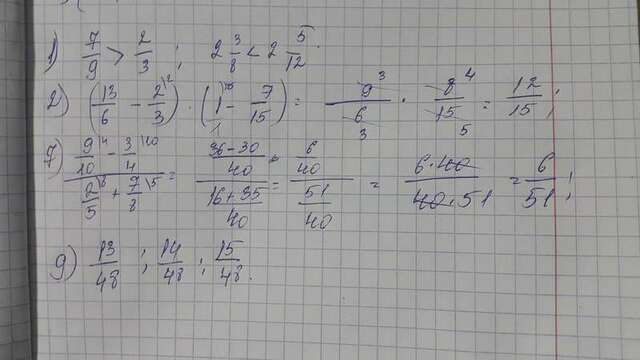 1) 7/9 > 2/3 ; 2 3/8 < 2 5/12.
2) (13/6 - 2/3 \2) · (1 \15 - 7/15) = 9 3/6 3 · 8 4/15 5 = 12/15;
7) (9/10 \4 - 3/4 \10)/(2/5 \8 + 7/8 \5) = ((36-30)/40)/((16+35)/40) = (6/40)/(51/40) = 6·40/40·51 = 6/51;
9) 13/48 ; 14/48 ; 15/48.